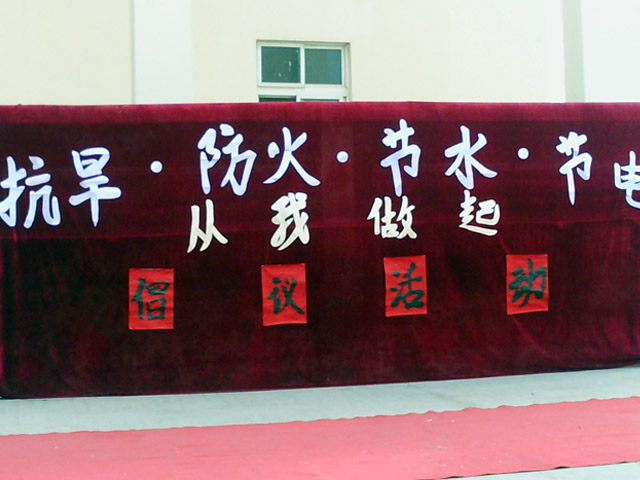 抗旱·防火·节水·节电
从我做起
倡议活动